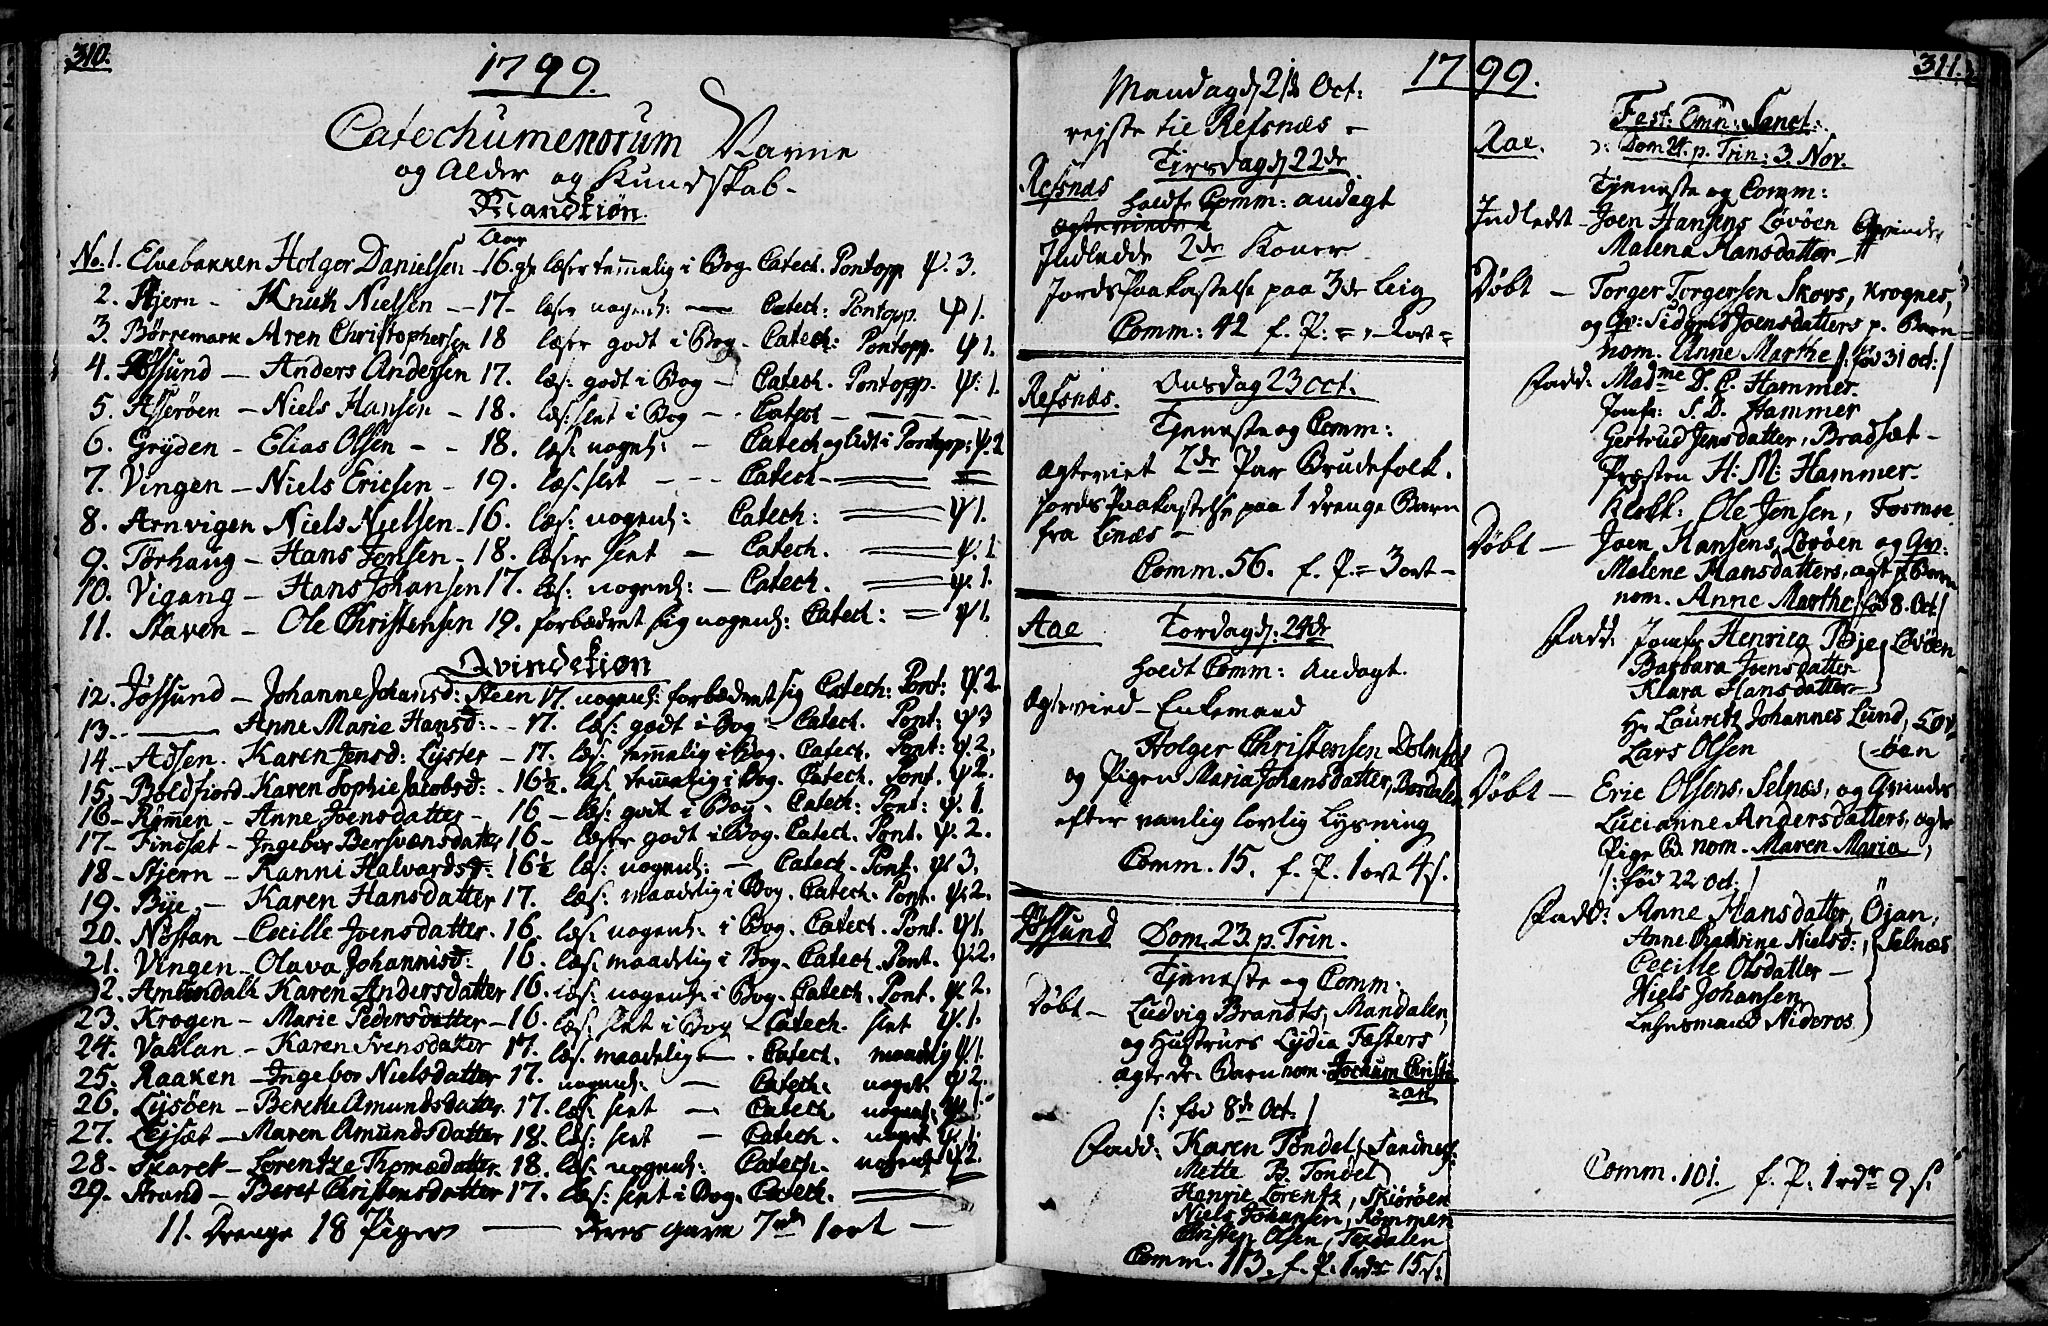 310.
1799.
Catechumenorum Navne
og Alder og Kundskab.
Mandkiøn.
Aar
No. 1. Elvebakken Holger Danielsen 16. læser temmelig i Bog. Catech. Pontopp. ψ. 3.
2. Stjern - Knuth Nielsen - 17 - læser nogenl: — Catech: Pontopp. ψ 1.
3. Børremark Aren Christophersen 18 læser godt i Bog. Catech: Pontopp. ψ 1.
4. Jøssund - Anders Andersen 17. læs: godt i Bog - Catech. Pontopp. ψ: 1.
5. Asserøen - Niels Hansen - 18. læs: slet i Bog - Catech - — —
6. Gryden - Elias Olsen - - 18. læs. nogenl: - Catech og lidt i Pontopp: ψ 2
7. Vingen - Niels Ericsen - 19. læs. slet - - - Catech —
8. Arnvigen Niels Nielsen - 16. læs: nogenl: Catech: — ψ 1.
9. Tørhaug - Hans Jensen - 18. læser slet - Catech. — ψ. 1
10. Vigang - Hans Johansen 17. læs: nogenl: - Catech. — ψ. 1.
11. Staven - Ole Christensen 19. forbædret sig nogenl: Catech: = ψ 1.
Qvindekiøn
12. Jøssund - Johanne Johansd: Steen 17. nogenl: forbædret sig Catech: Pont: ψ. 2
13. — Anne Marie Hansd: - - 17. læs: godt i Bog - Catech. Pont: ψ 3
14. - Adsen. Karen Jensd: Lyster - 17. læs: temmelig i Bog. Catech. Pont: ψ 2.
15. Boldfiord - Karen Sophie Jacobsd: - 16½. læs. temmelig i Bog. Catech. Pont. ψ 2.
16 - Rømmen - Anne Joensdatter - 16 - læs: godt i Bog. Catech: Pont: ψ. 1.
17 - Findsæt - Ingebor Bersvænsdatter 16 - læser godt i Bog. Catech. Pont. ψ. 2.
18 - Stjern - Ranni Halvardsd: 16½ læs: nogenl: - Catech. Pont. ψ 3.
19. Bye - Karen Hansdatter 17. læs: maadelig i Bog. Catech. Pont. ψ. 2.
20. Nøstan - Cecille Joensdatter. 16. læs: nogenl: i Bog. Catech. Pont. ψ 1.
21. Vingen - Olava Johannisd: 16. læs: maadelig i Bog. Catech. Pont. ψ. 2.
22. Amundale Karen Andersdatter 16. læs: nogenl: i Bog. Catech. Pont. ψ. 2.
23. Krogen - Marie Pedersdatter - 16. læs: slet i Bog - Catech. slet ψ. 1.
24. Vallan - Karen Svensdatter 17. læs. maadelig — . Catech. maadelig ψ. 1.
25. Raaken - Ingebor Nielsdatter 17. nogenl: — Catech. noget ψ 2.
26. Lysøen - Berethe Amundsdatter. 17. læs: slet — Catech nogenl: ψ 1.
27. Lejsæt - Maren Amundsdatter 18. læs: slet - Catech. noget ψ. 1.
28. Skaret - Lorentze Thomædatter. 18. læs. nogenl: Catech. nogenl: ψ 2.
29. Strand - Beret Christensdatter 17. læs: slet i Bog. Catech. —
11. Drenge 18 Piger — deres gave 7 rd 1 ort -
1799. 311.
Mandag d. 21de Oct:
rejste til Refsnæs -
Refsnæs Tirsdag d. 22de
holdt Comm: andagt
Indledde 2de Koner
JordsPaakastelse paa 3de Liig
Comm: 42 f. P: = , - 2 ort =
Refsnæs. Onsdag 23 oct:
Tjeneste og Comm:
ægteviet 2de Par Brudefolk.
JordsPaakastelse paa 1 drenge Barn
fra Linæs -
Comm. 56. f. P. = 3 ort -
Aae Torsdag d. 24de
holdt Comm: Andagt.
Ægteviet - Enkemand
Holger Christensen Dolmsæt
og Pigen Maria Johansdatter, Dordalen
efter vanlig lovlig Lysning
Comm. 15. f. P. 1 ort 4 s.
Jøssund Dom. 23. p. Trin.
Tjeneste og Comm:
Døbt - Ludvig Brandts, Mandalen,
og Hustrues Lydia Fæsters
ægte dr. Barn nom. Jochum Christi
=an
/: fød 8de Oct: /
Fadd: Karen Tøndel, Sandnes:
Mette B. Tøndel
Henric Lorentz, Skiørøen
Niels Johansen, Rømmen
Christen Olsen, Texdalen
Comm. 113. f. P. 1 rdr 15 s.
Fest: Omn: Sanct:
Aae. ɔ: Dom 24. p. Trin: 3. Nov.
Tjeneste og Comm:
Indledt - Joen Hansens Løvøen Qvinde
Malena Hansdatter -
Døbt - Torger Torgersen Skovs, Krognes,
og Qv: Sidgrid Joensdatters p. Barn
nom. Anne Marthe /: fød 31 oct: /
Fadd: Madme D. C. Hammer.
Jomfr: S. D. Hammer
Gertrud Jensdatter, Bradsæt -
Præsten H: M: Hammer.
Klokk: Ole Jensen, Fosmoe
Døbt - Joen Hansens Løvøen og Qv:
Malene Hansdatters, ægt p Barn
nom. Anne Marthe / fød 8. Oct /
Fadd: Jomfr Henrica Bye Løvøen
Barbara Joensdatter
Klara Hansdatter
Hr Lauretz Johannes Lund, Løv
Lars Olsen -øen
Døbt - Eric Olsens, Selnæs, og Qvindes
Lucianne Andersdatters, ægte
Pige B. nom. Maren Maria,
/: fød 22 Oct. /
Fadd: Anne Hansdatter, Öjan,
Anne Cathrine Nielsd:, Selnæs
Cecille Olsdatter -
Niels Johansen
Lehnsmand Nideros
Comm. 101. f. P: 1 rdr 9 s.